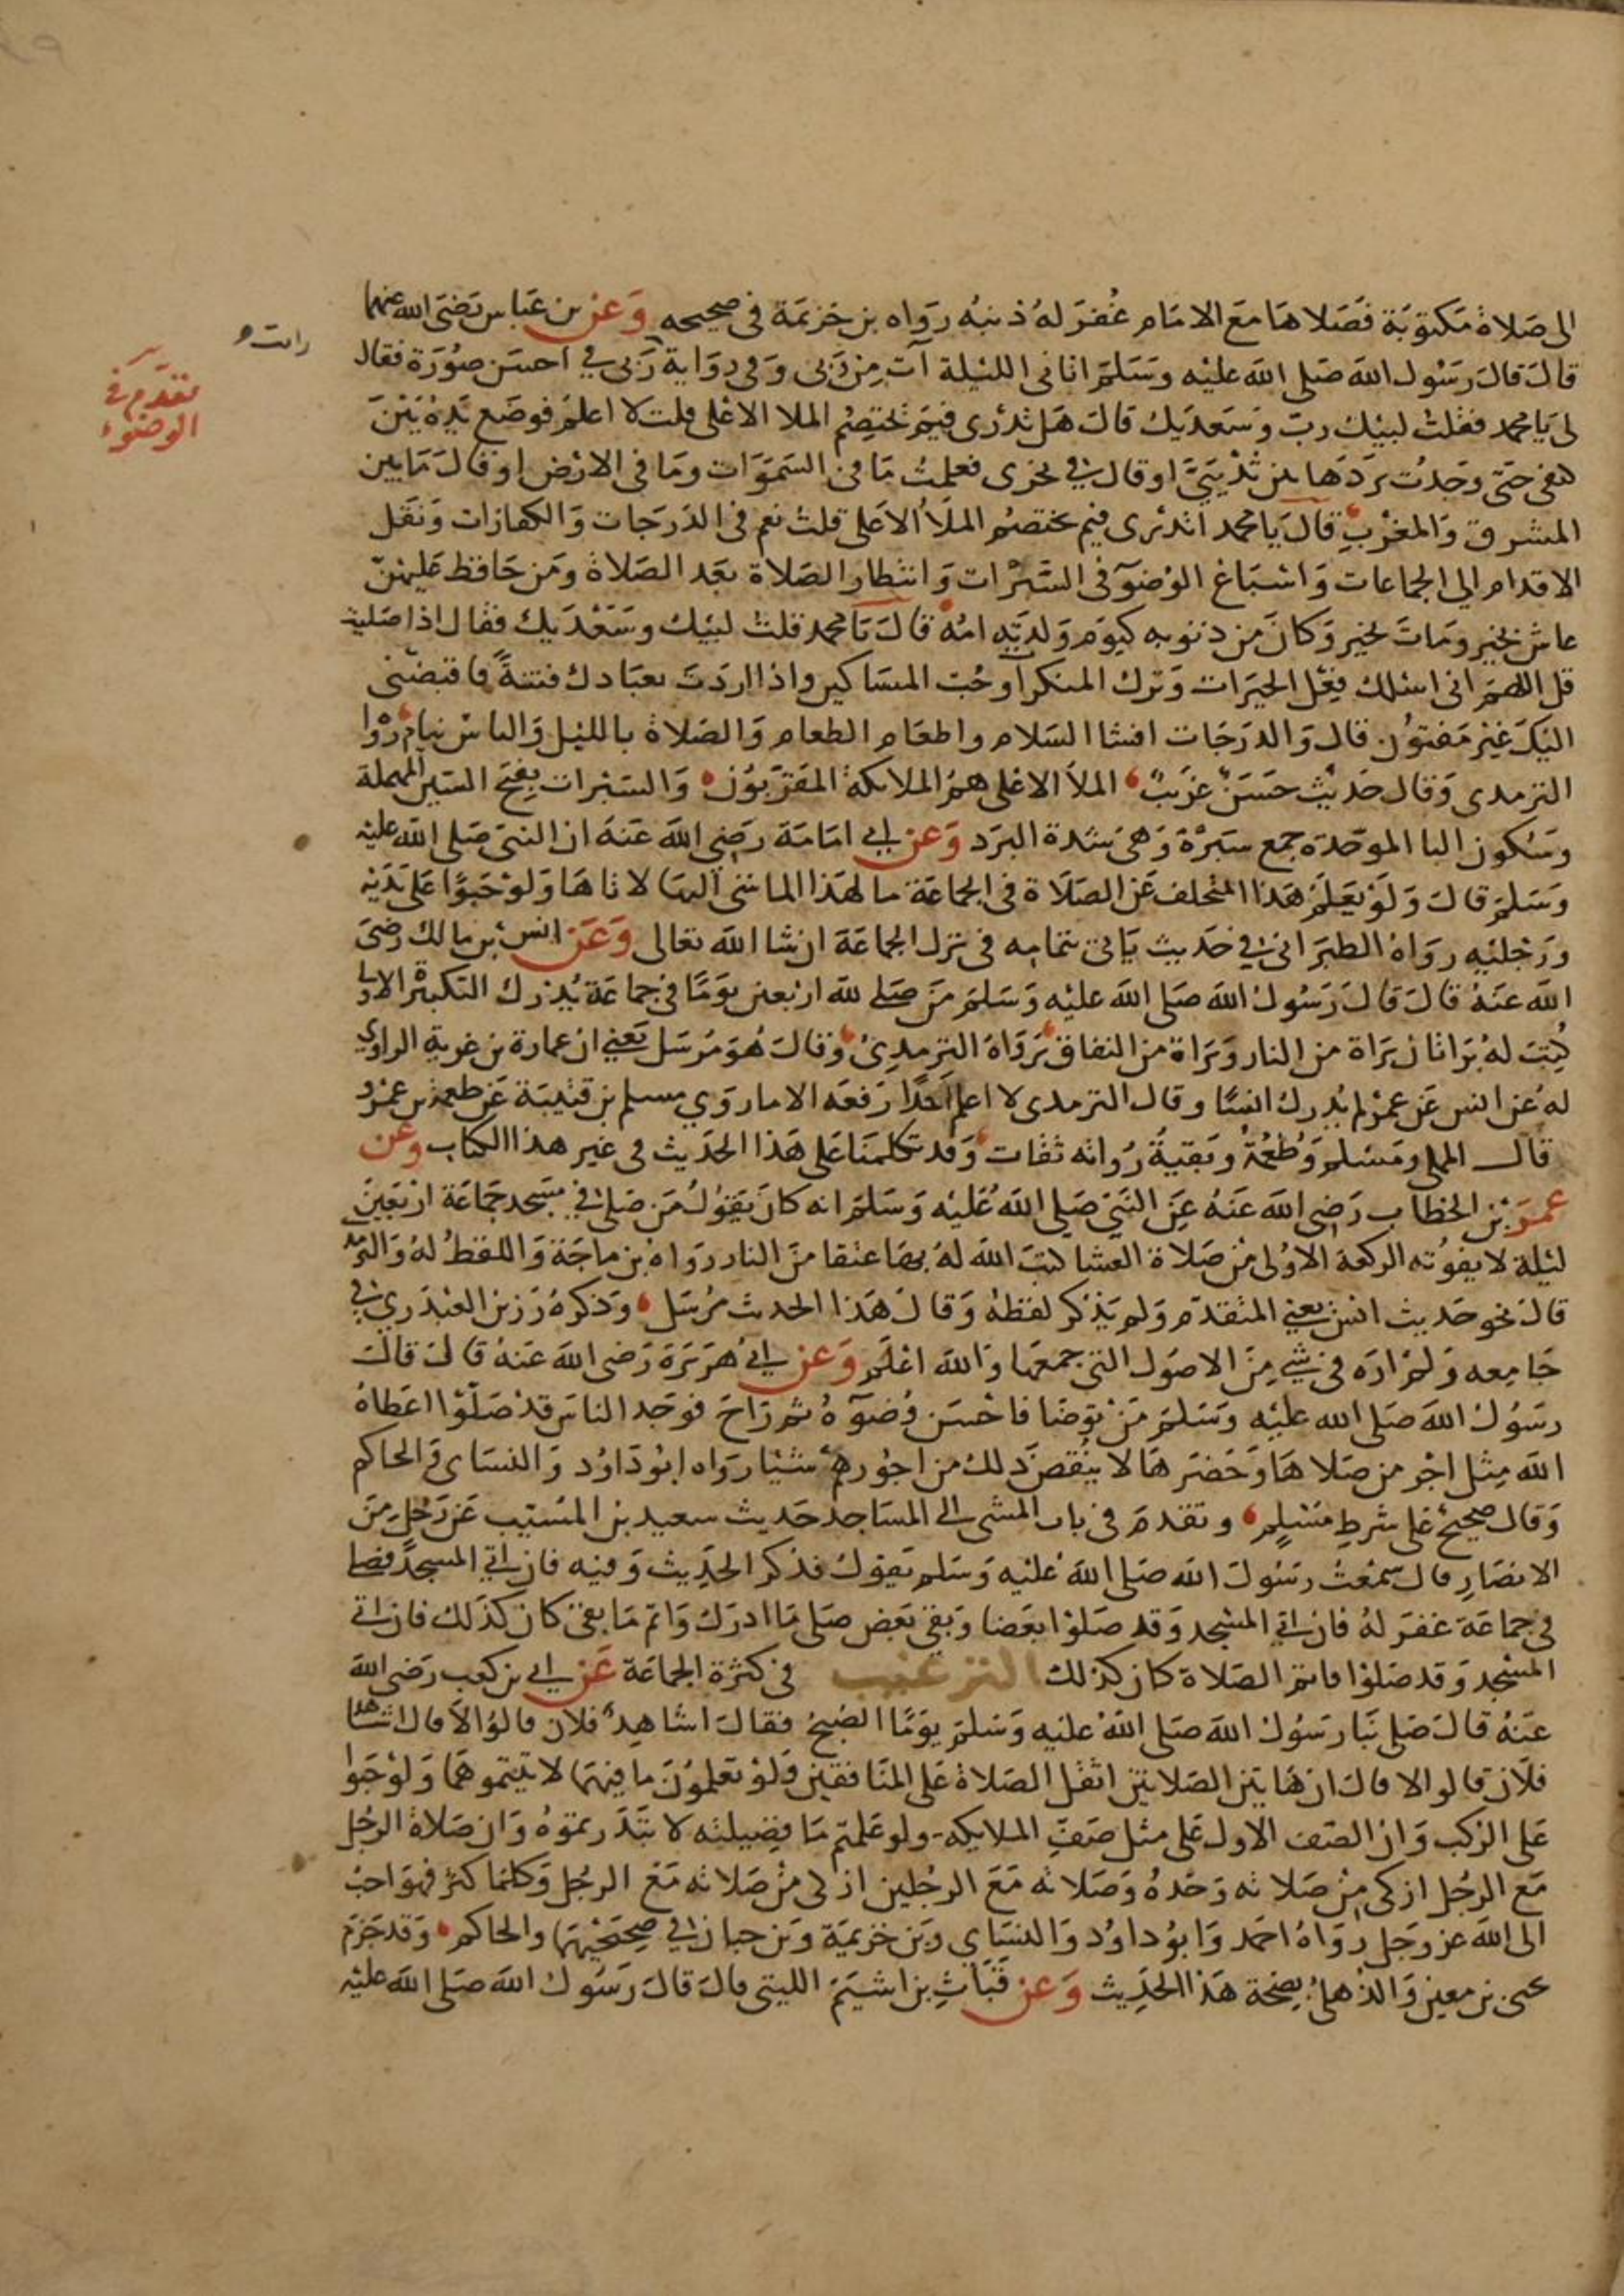 الى صلاة مكتوبة فصلاها مع الامام غُفر له ذنبه رواه بن خزيمة فى صحيحه وعن بن عباس رضى الله عنهما
رايت
تقدم فى
الوضوء
قال قال رسول الله صلى الله عليه وسلم اتانى الليلة آت من ربى وفى رواية ربى في احسن صورة فقال
لى يا محمد فقلت لبيك رب وسعديك قال هل تدرى فيم تختصم الملا الاعلى قلت لا اعلم فوضع يده بين
كتفى حتى وجدت بردها بين ثدييَّ او قال في نحرى فعلمت ما فى السموات وما فى الارض او قال ما بين
المشرق والمغرب قال يا محمد اتدرى فيم يختصم الملأ الاعلى قلت نعم فى الدرجات والكفارات ونقل
الاقدام الى الجماعات واسباغ الوضوء فى السبرات وانتظار الصلاة بعد الصلاة ومن حافظ عليهن
عاش بخير ومات بخير وكان من ذنوبه كيوم ولدته امه قال يا محمد قلت لبيك وسعديك فقال اذا صليت
قل اللهم انى اسئلك فعل الخيرات وترك المنكرات وحب المساكين واذا اردت بعبادك فتنة فاقبضنى
اليك غير مفتون قال والدرجات افشا السلام واطعام الطعام والصلاة بالليل والناس نيام رواه
الترمدى وقال حديث حسن غريب الملأ الاعلى هم الملائكة المقربون والسبرات بفتح السين المهملة
وسكون البا الموحدة جمع سبرة وهى شدة البرد وعن ابي امامة رضى الله عنه ان النبى صلى الله عليه
وسلم قال ولو يعلم هذا المتخلف عن الصلاة فى الجماعة ما لهذا الماشى اليها لاتاها ولو حبوًا على يديه
ورجليه رواه الطبرانى في حديث ياتى بتمامه فى ترك الجماعة ان شا الله تعالى وعن انس بن مالك رضى
الله عنه قال قال رسول الله صلى الله عليه وسلم من صلى لله اربعين يومًا فى جماعة يدرك التكبيرة الاولى
كُتب له براتان براة من النار وبراة من النفاق رواه الترمدى وقال هو مرسل يعني ان عمارة بن غزية الراوي
له عن انس عن عمر لم يدرك انسًا وقال الترمدى لا اعلم احدًا رفعه الا ما روي مسلم بن قتيبة عن طعمة بن عمرو
قال المملى ومسلم وطعمة وبقية رواته ثقات وقد تكلمنا على هذا الحديث فى غير هذا الكتاب وعن
عمر بن الخطاب رضى الله عنه عن النبى صلى الله عليه وسلم انه كان يقول من صلى في مسجد جماعة اربعين
ليلة لا يفوته الركعة الاولى من صلاة العشا كتب الله له بها عتقا من النار رواه بن ماجة واللفظ له والترمد
قال نحو حديث انس يعني المتقدم ولم يذكر لفظه وقال هذا الحديث مرسل وذكره رزين العبدري في
جامعه ولم اره في شي من الاصول التى جمعها والله اعلم وعن ابي هريرة رضى الله عنه قال قال
رسول الله صلى الله عليه وسلم من توضا فاحسن وضوءه ثم راح فوجد الناس قد صلوا اعطاه
الله مثل اجر من صلاها وحضرها لا ينقص ذلك من اجورهم شيئا رواه ابو داود والنساى والحاكم
وقال صحيح على شرط مسلم وتقدم فى باب المشى الى المساجد حديث سعيد بن المسيب عن رجل من
الانصار قال سمعت رسول الله صلى الله عليه وسلم يقول فذكر الحديث وفيه فان اتى المسجد فصلى
فى جماعة غفر له فان اتى المسجد وقد صلوا بعضا وبقى بعض صلى ما ادرك واتم ما بقى كان كذلك فان اتى
المسجد وقد صلوا فاتم الصلاة كان كذلك الترغيب فى كثرة الجماعة عن ابي بن كعب رضى الله
عنه قال صلى بنا رسول الله صلى الله عليه وسلم يومًا الصبح فقال اشاهد فلان قالوا لا قال اشاهد
فلان قالوا لا قال ان هاتين الصلاتين اثقل الصلاة على المنافقين ولو تعلمون ما فيهما لاتيتموهما ولو حبوا
على الركب وان الصف الاول على مثل صف الملايكه ولو علمتم ما فضيلته لابتدرتموه وان صلاة الرجل
مع الرجل ازكى من صلاته وحده وصلاته مع الرجلين ازكى من صلاته مع الرجل وكلما كثر فهو احب
الى الله عز وجل رواه احمد وابو داود والنساى وبن خزيمة وبن حبان في صحيحيهما والحاكم وقد جزم
يحيى بن معين والذهلى بصحة هذا الحديث وعن قباث بن اشيم الليثى قال قال رسول الله صلى الله عليه